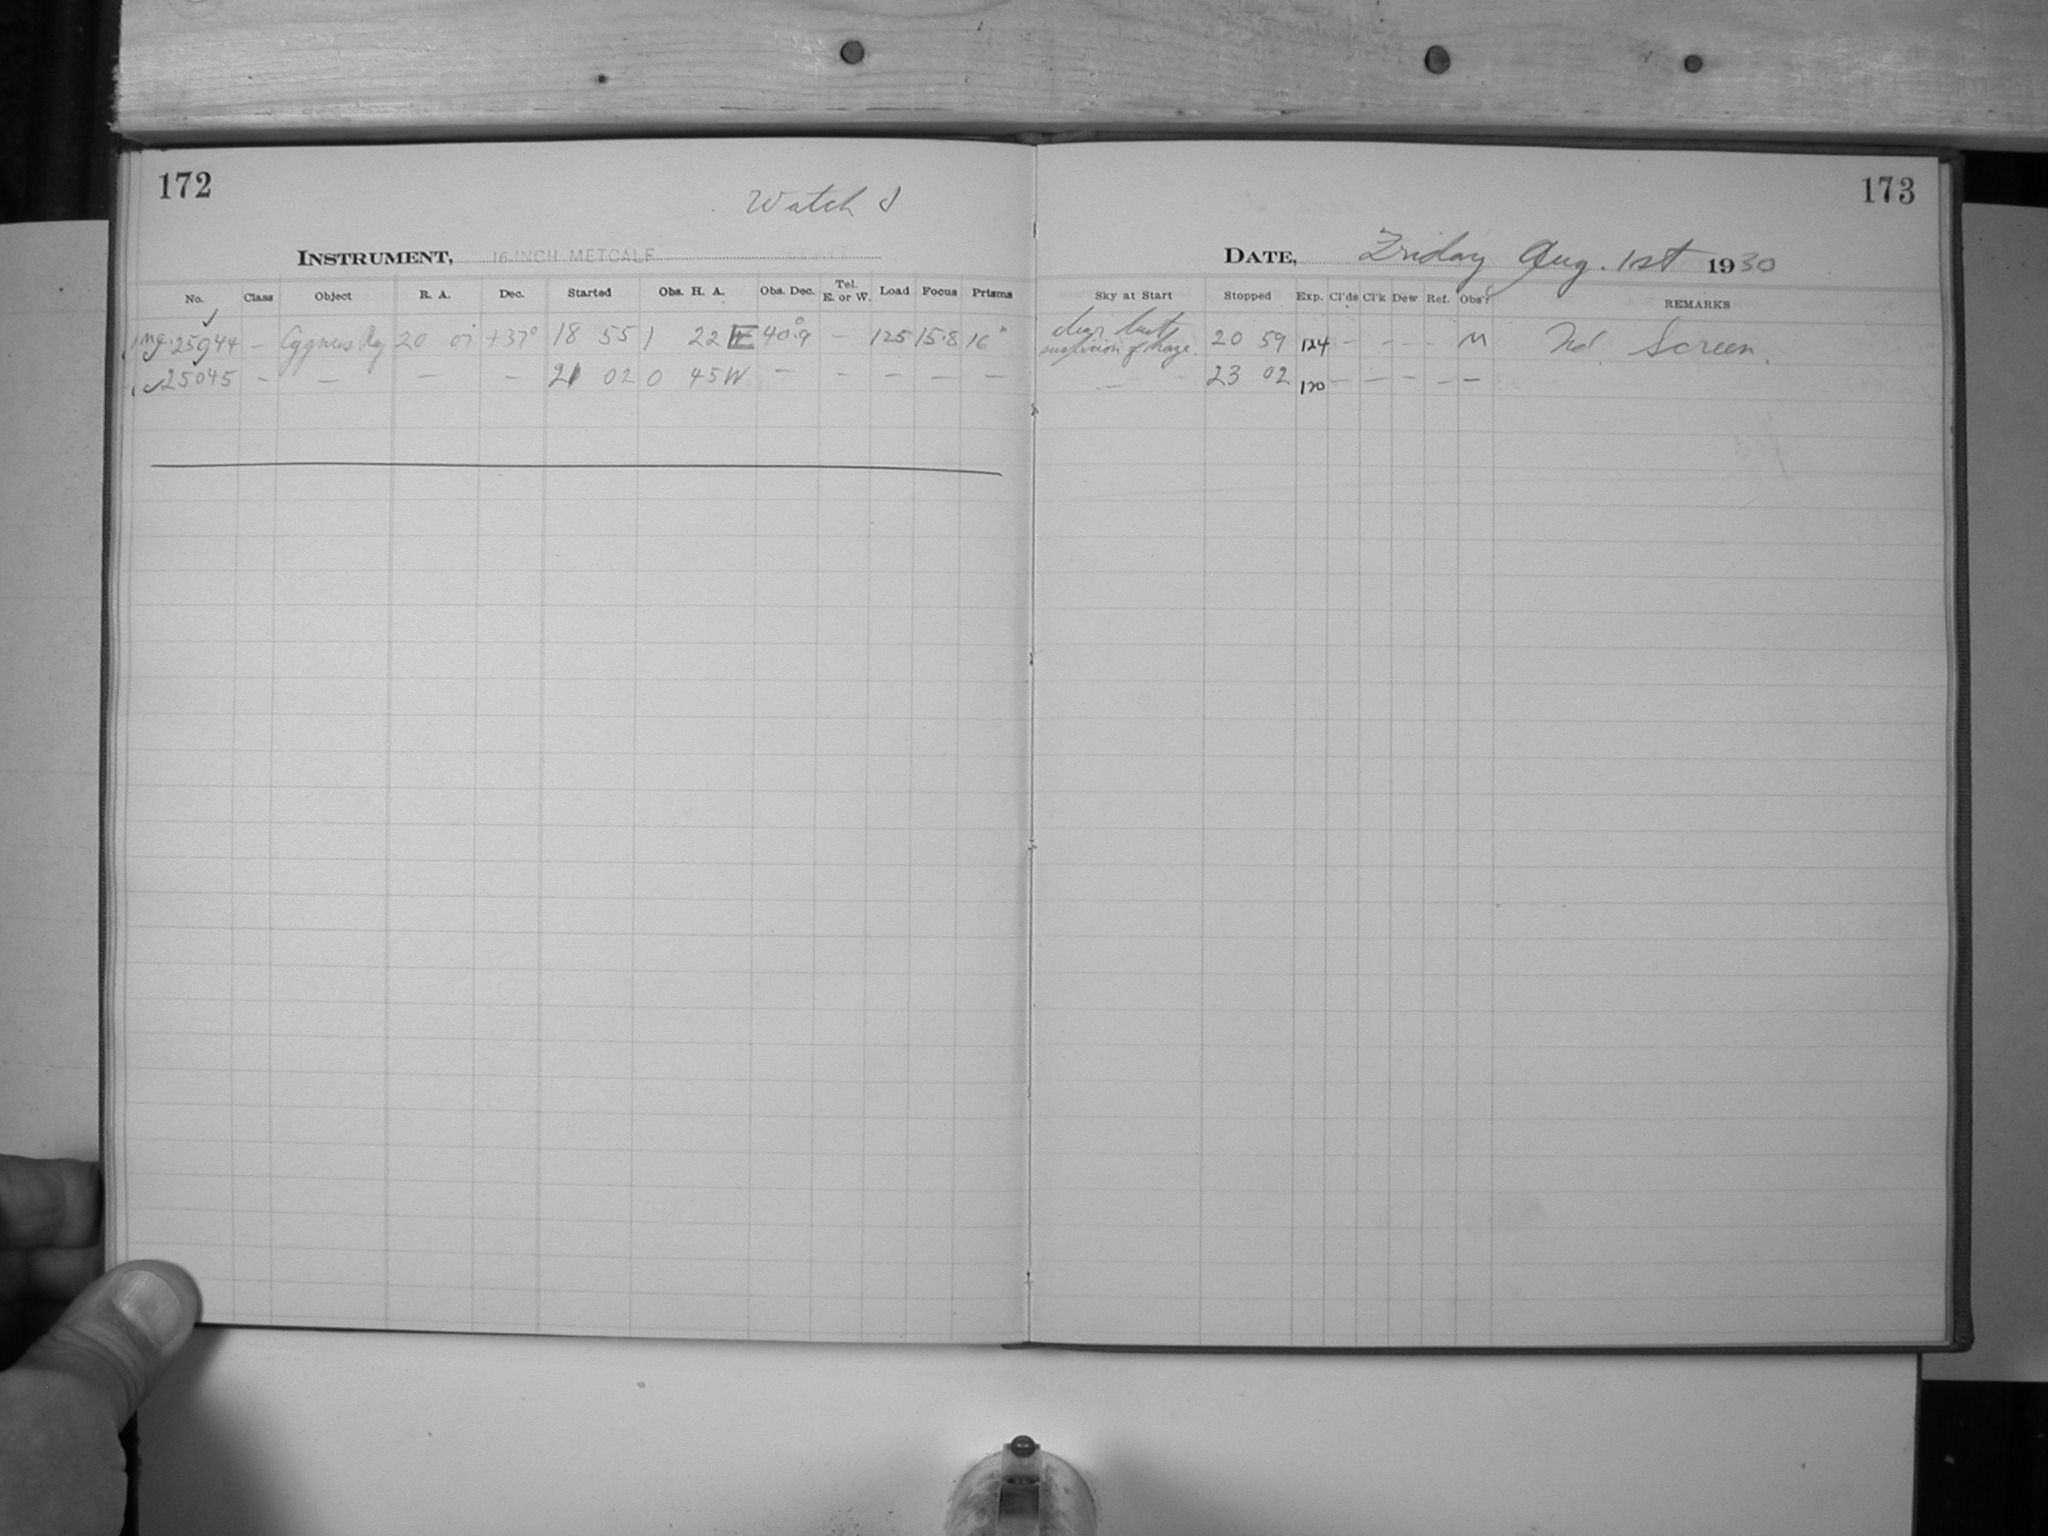 172
Watch
INSTRUMENT, 16-INCH METCALF
No. Class Object R. A. Dec. Started Obs. H. A. Obs. Dec. Tel. E. or W. Load Focus Prisms
25944 – Cygnus Reg 20 01 +37° 18 55 1 22 E 40.°9 – 125 15.8 16"
25045 – – – – 21 02 0 45W – – – – –
173
DATE, Friday Aug. 1st 1930
Sky at Start Stopped Exp. Cl'ds Cl'k Dew Ref. Obs'r REMARKS
clear but suspicion of haze. 20 59 124 – – – – M Screen.
– 23 02 120 – – – – –